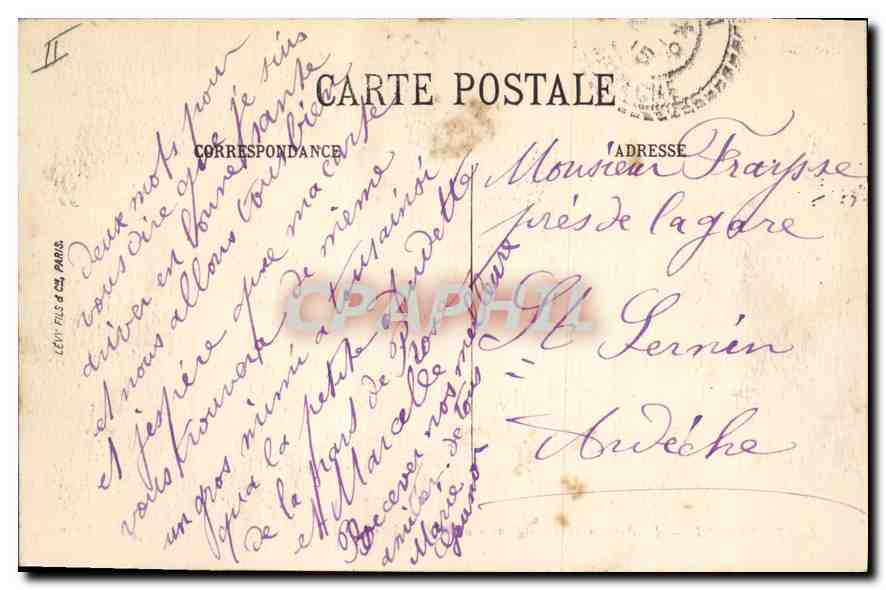 II
CARTE POSTALE
CORRESPONDANCE
ADRESSE
LÉVY FILS & Cie, PARIS.
deux mots pour
vous dire que je suis
ariver en bonne sante
et nous allons tous bien
et j'espère que ma carte
vous trouvera de même
un gros mimi a vous ainsi
qu'a la petite Audette
de la part de
et Marcelle
Recever nos meilleure
amitiés de tous
Marie
Monsieur Fraysse
prés de la gare
St Sernin
Ardéche
CPAPHIL